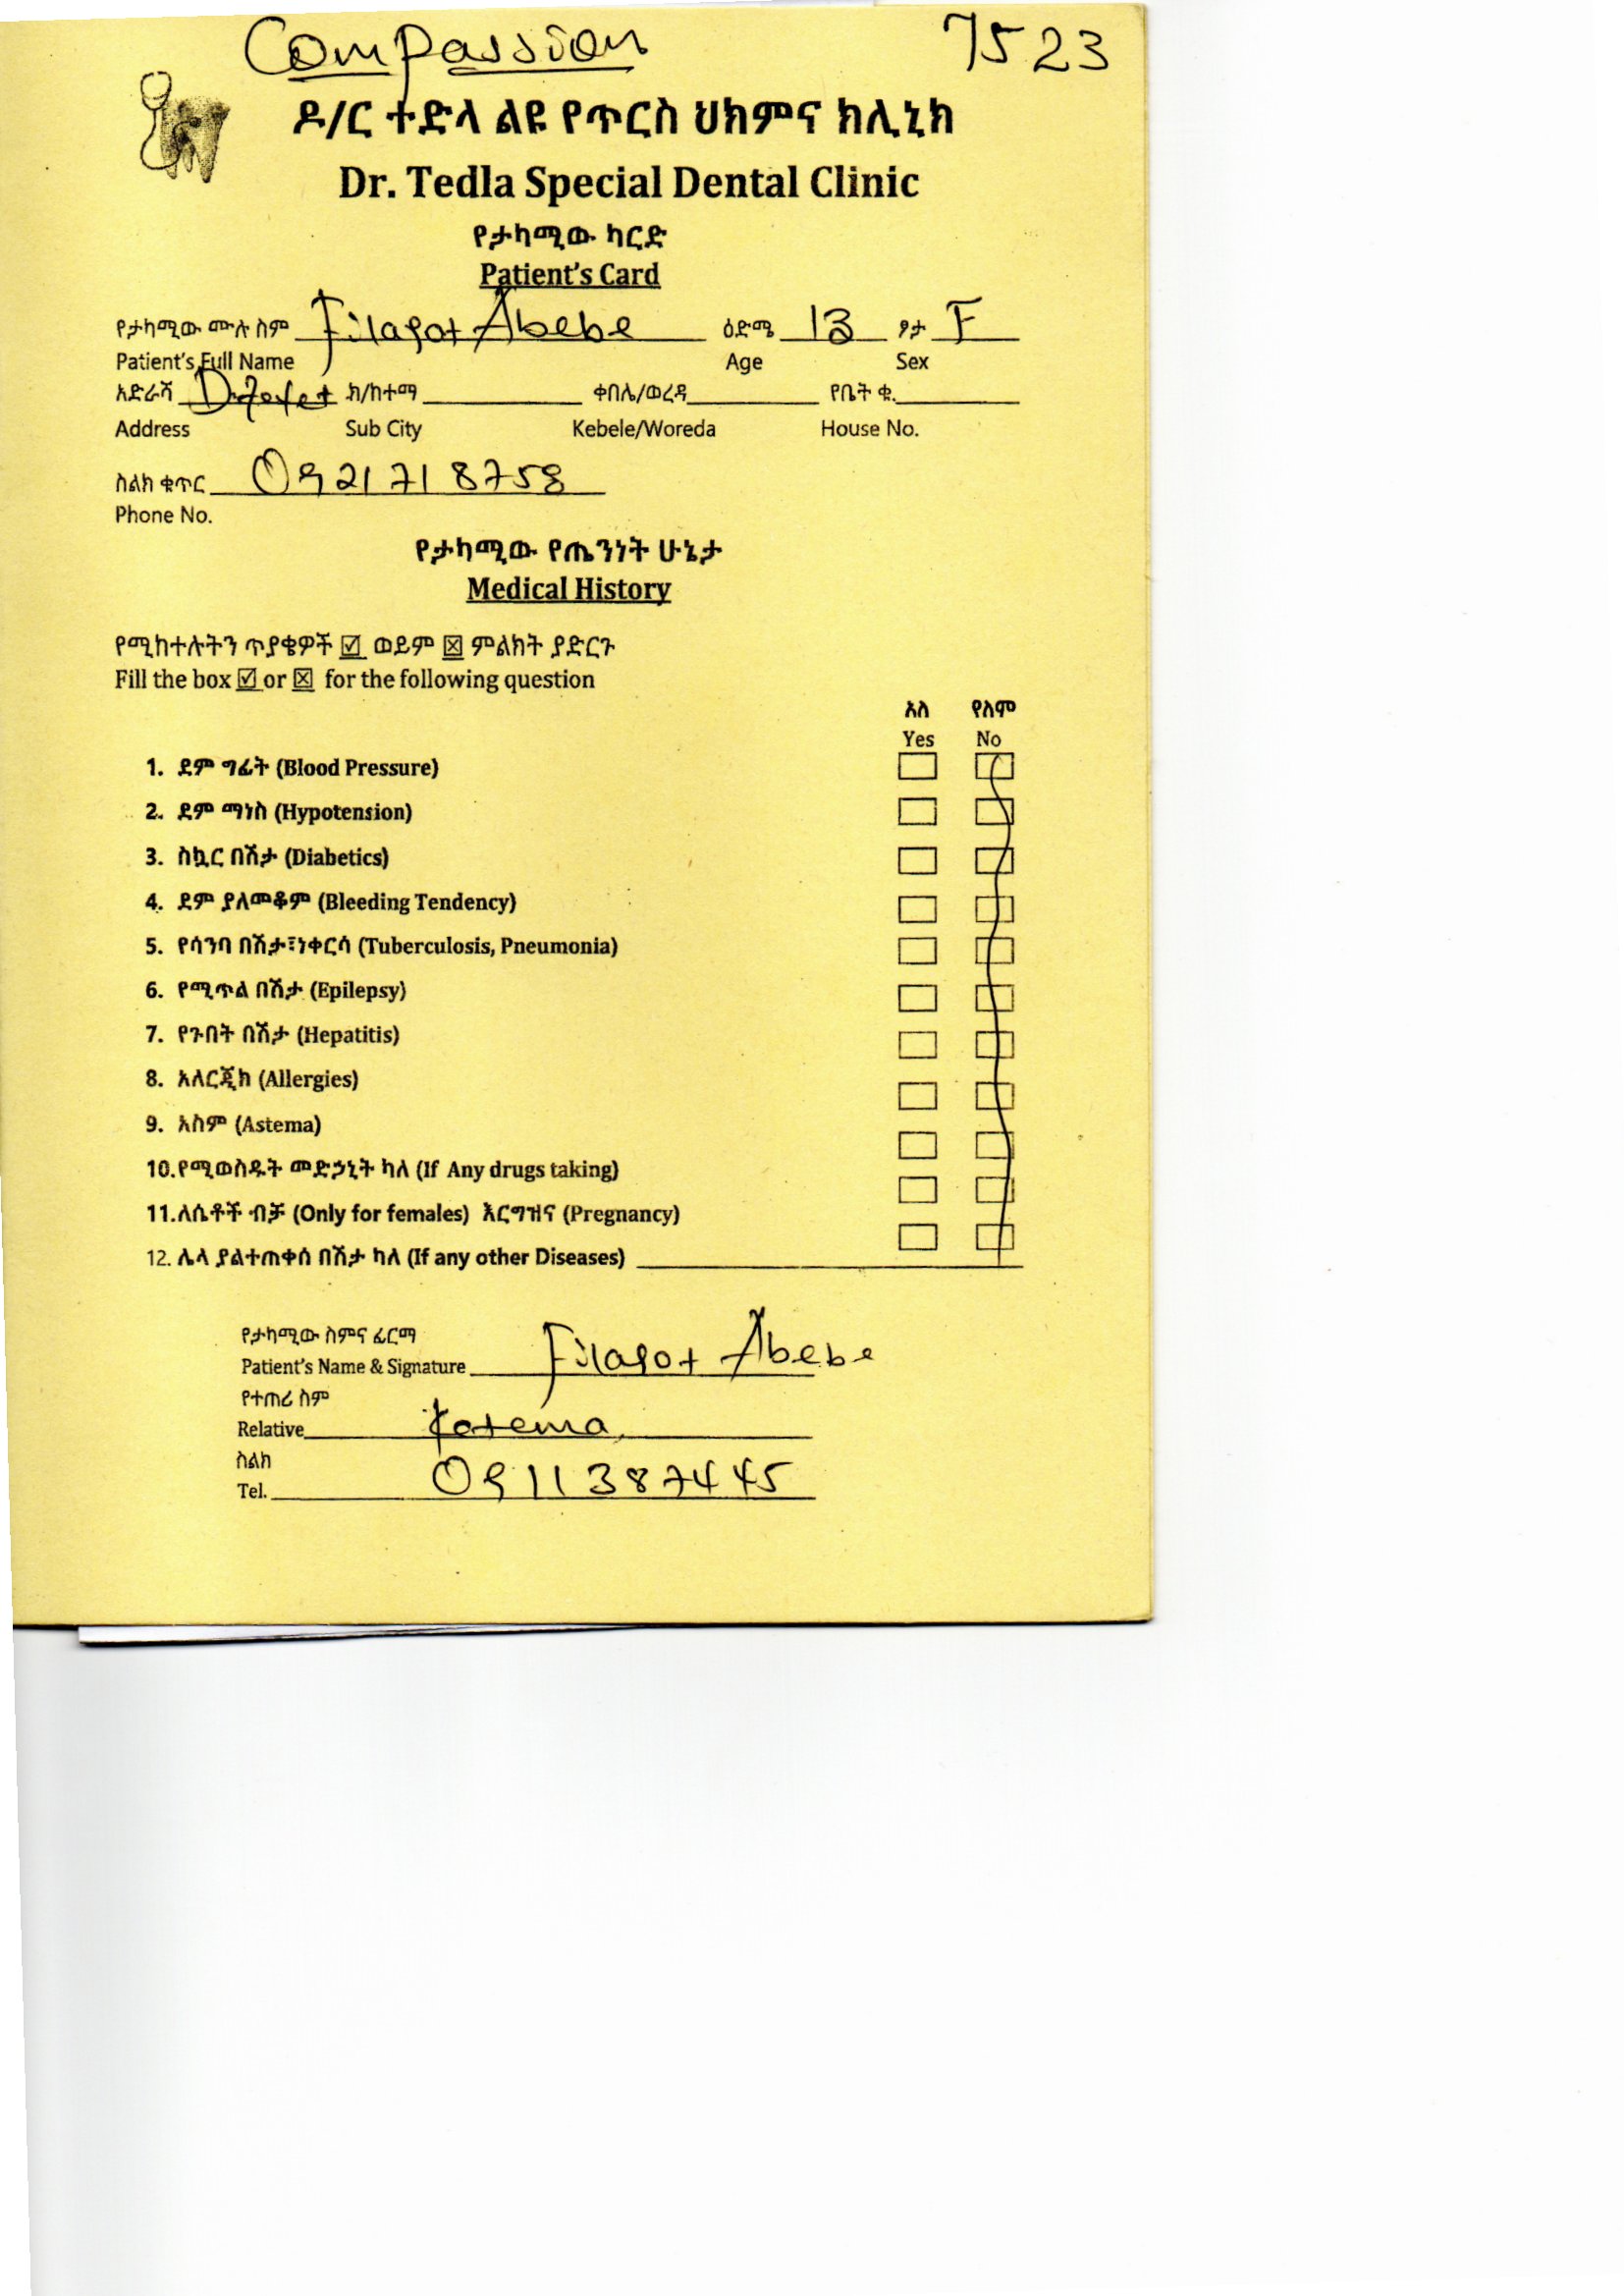 Compassion 7523
ዶ/ር ተድላ ልዩ የጥርስ ህክምና ክሊኒክ
Dr. Tedla Special Dental Clinic
የታካሚው ካርድ
Patient's Card
የታካሚው ሙሉ ስም Filagot Abebe ዕድሜ 13 ፆታ F
Patient's Full Name Age Sex
አድራሻ ክ/ከተማ ቀበሌ/ወረዳ የቤት ቁ.
Address Sub City Kebele/Woreda House No.
ስልክ ቁጥር 0921718758
Phone No.
የታካሚው የጤንነት ሁኔታ
Medical History
የሚከተሉትን ጥያቄዎች ☑ ወይም ☒ ምልክት ያድርጉ
Fill the box ☑ or ☒ for the following question
አለ የለም
Yes No
1. ደም ግፊት (Blood Pressure)
2. ደም ማነስ (Hypotension)
3. ስኳር በሽታ (Diabetics)
4. ደም ያለመቆም (Bleeding Tendency)
5. የሳንባ በሽታ፣ነቀርሳ (Tuberculosis, Pneumonia)
6. የሚጥል በሽታ (Epilepsy)
7. የጉበት በሽታ (Hepatitis)
8. አለርጂክ (Allergies)
9. አስም (Astema)
10.የሚወስዱት መድኃኒት ካለ (If Any drugs taking)
11.ለሴቶች ብቻ (Only for females) እርግዝና (Pregnancy)
12. ሌላ ያልተጠቀሰ በሽታ ካለ (If any other Diseases)
የታካሚው ስምና ፊርማ
Patient's Name & Signature Filagot Abebe
የተጠሪ ስም
Relative
ስልክ
Tel. 0911387445